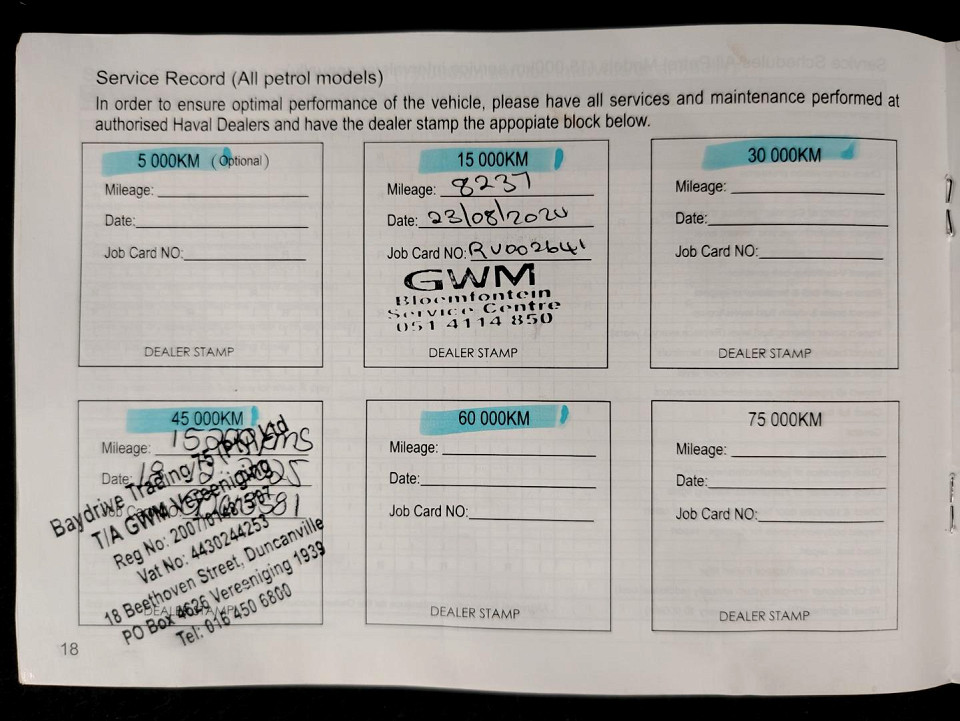 Service Record (All petrol models)
In order to ensure optimal performance of the vehicle, please have all services and maintenance performed at
authorised Haval Dealers and have the dealer stamp the appopiate block below.
5 000KM (Optional)
Mileage:
Date:
Job Card NO:
DEALER STAMP
15 000KM
Mileage: 8237
Date: 23/08/2024
Job Card NO: RV002641
GWM
Bloemfontein
Service Centre
051 4114 850
DEALER STAMP
30 000KM
Mileage:
Date:
Job Card NO:
DEALER STAMP
45 000KM
Mileage:
Date: 18
Baydrive Trading 75 (Pty) Ltd
T/A GWM Vereeniging
Reg No:
Vat No: 4430244253
18 Beethoven Street, Duncanville
PO Box 4626 Vereeniging 1939
Tel: 016 450 6800
DEALER STAMP
60 000KM
Mileage:
Date:
Job Card NO:
DEALER STAMP
75 000KM
Mileage:
Date:
Job Card NO:
DEALER STAMP
18